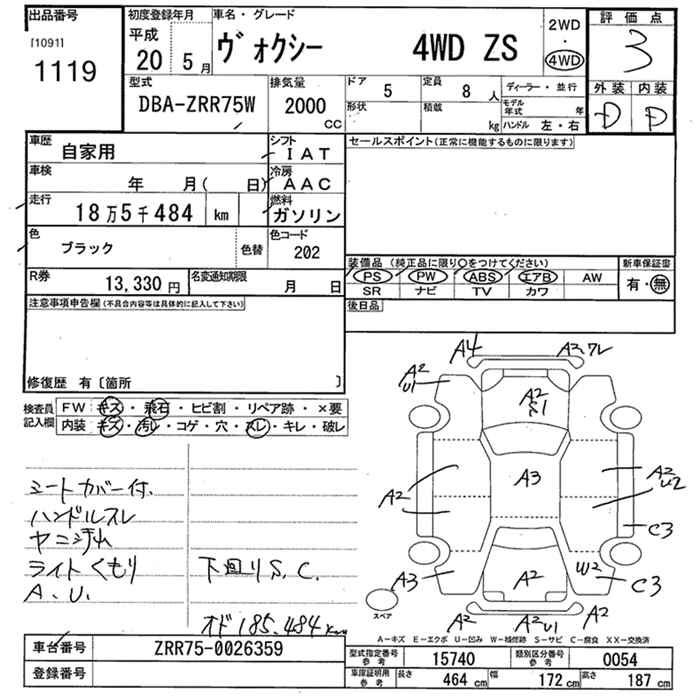 出品番号
[1091]
1119
初度登録年月
平成
20 5月
車名・グレード
ヴォクシー 4WD ZS
2WD
・
4WD
評価点
3
外装 内装
D D
型式
DBA-ZRR75W
排気量
2000
CC
ドア
5
定員
8人
形状
積載
kg
ディーラー・並行
モデル年式 年
ハンドル 左・右
車歴
自家用
シフト
IAT
車検
年 月( 日)
冷房
AAC
走行
18万5千484 km
燃料
ガソリン
色
ブラック
色替
色コード
202
R券
13,330円
名変通知期限
月 日
セールスポイント(正常に機能するものに限ります)
装備品(純正品に限り○をつけてください)
PS PW ABS エアB AW
SR ナビ TV カワ
新車保証書
有・無
後日品
注意事項申告欄(不具合内容等は具体的に記入して下さい)
修復歴 有〔箇所 〕
検査員
記入欄
FW キズ・飛石・ヒビ割・リペア跡・×要
内装 キズ・汚レ・コゲ・穴・スレ・キレ・破レ
シートカバー付.
ハンドルスレ
ヤニ汚れ
ライトくもり
A.U.
下回りS.C.
オド185,484km
A4
A2,ワレ
A2
U1
A2
A3
A2
A2
U2
C3
A3
A2
W2
C3
スペア
A2
A2U1
A2
A-キズ E-エクボ U-凹み W-補修跡 S-サビ C-腐食 XX-交換済
車台番号
ZRR75-0026359
登録番号
型式指定番号
参考
15740
類別区分番号
参考
0054
車庫証明用
参考
長さ 464cm 幅 172cm 高さ 187cm